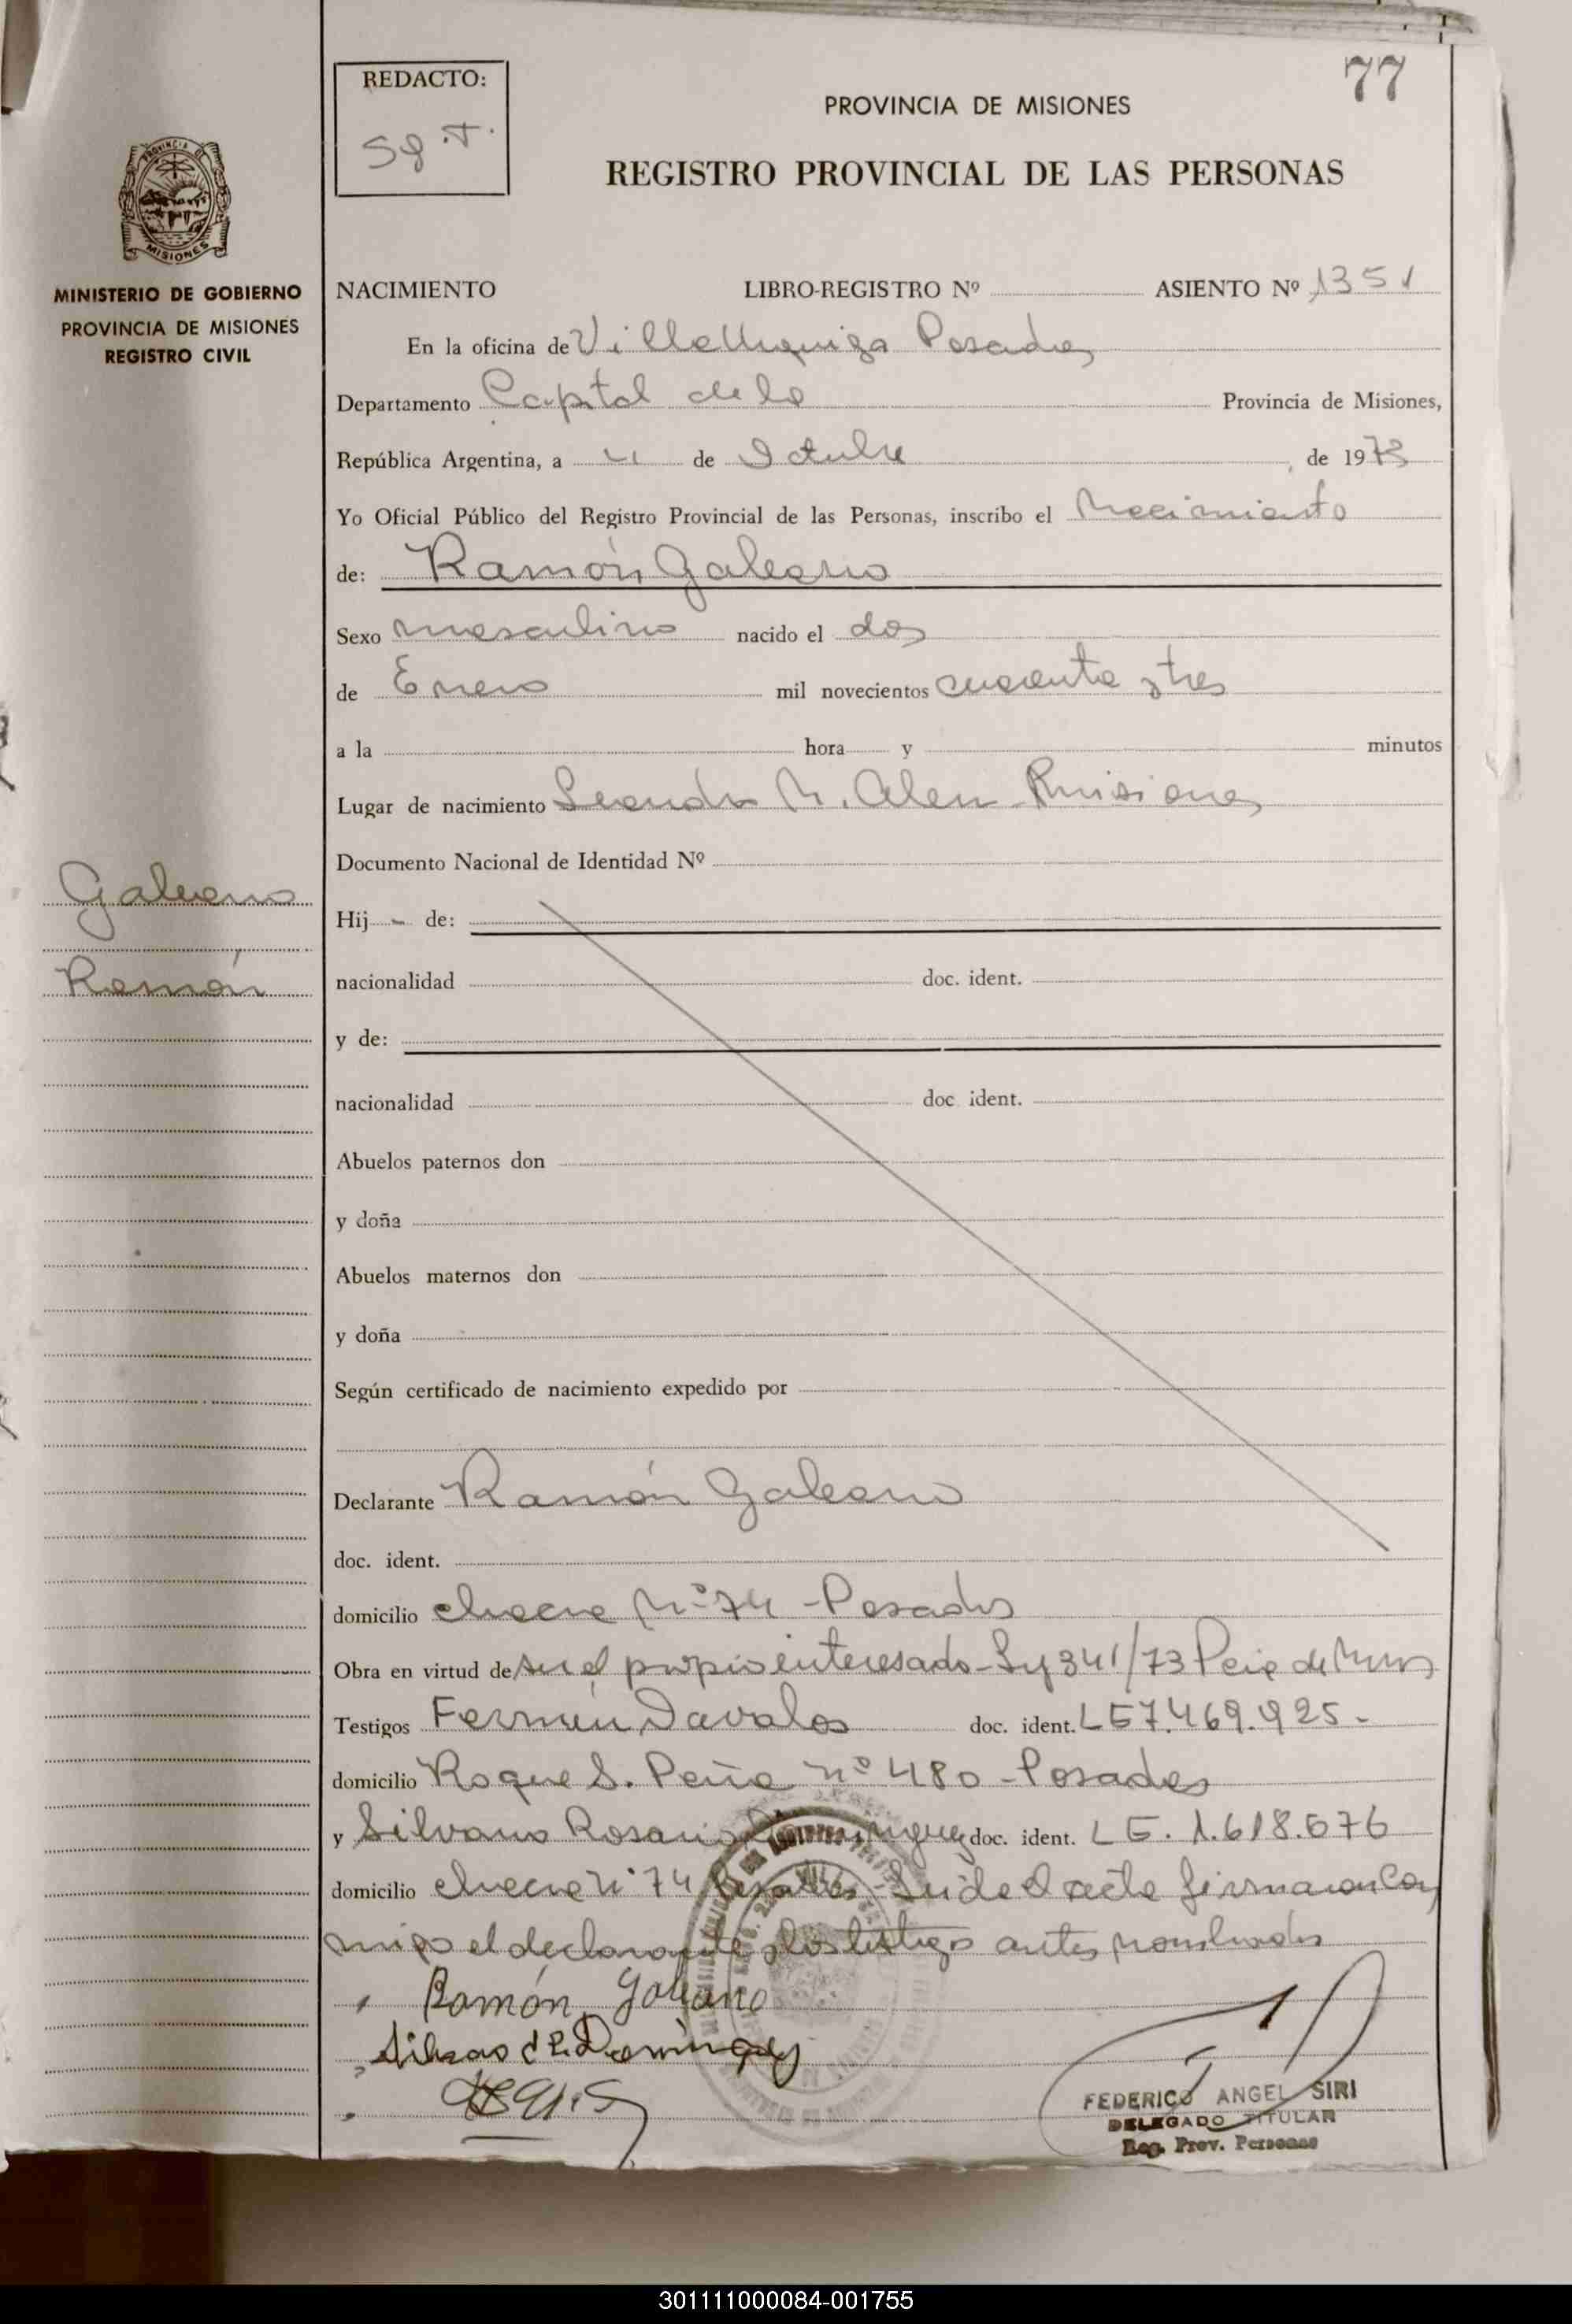 77
REDACTO:
PROVINCIA DE MISIONES
REGISTRO PROVINCIAL DE LAS PERSONAS
MISIONES
MINISTERIO DE GOBIERNO
PROVINCIA DE MISIONES
REGISTRO CIVIL
NACIMIENTO LIBRO-REGISTRO Nº ASIENTO Nº 1351
En la oficina de Villa Urquiza Posadas
Departamento Capital de la Provincia de Misiones,
República Argentina, a 4 de Octubre de 1973
Yo Oficial Público del Registro Provincial de las Personas, inscribo el Nacimiento
de: Ramón Galeano
Sexo masculino nacido el dos
de Enero mil novecientos cuarenta y tres
a la hora y minutos
Lugar de nacimiento Leandro N. Alem Misiones
Documento Nacional de Identidad Nº
Galeano
Ramón
Hij - de:
nacionalidad doc. ident.
y de:
nacionalidad doc ident.
Abuelos paternos don
y doña
Abuelos maternos don
y doña
Según certificado de nacimiento expedido por
Declarante Ramón Galeano
doc. ident.
domicilio chacra Nº 74 - Posadas
Obra en virtud de ser el propio interesado - Ley 341/73 de
Testigos Fermín Davalos doc. ident. LE 7.469.925.-
domicilio Roque S. Peña nº 480 - Posadas
y Silvano Rosario doc. ident. LE. 1.618.676
domicilio chacra Nº 74 Posadas - Leida el acta firmaron con
migo el declarante y los testigos antes nombrados
Ramón Galeano
FEDERICO ANGEL SIRI
DELEGADO TITULAR
Reg. Prov. Personas
301111000084-001755